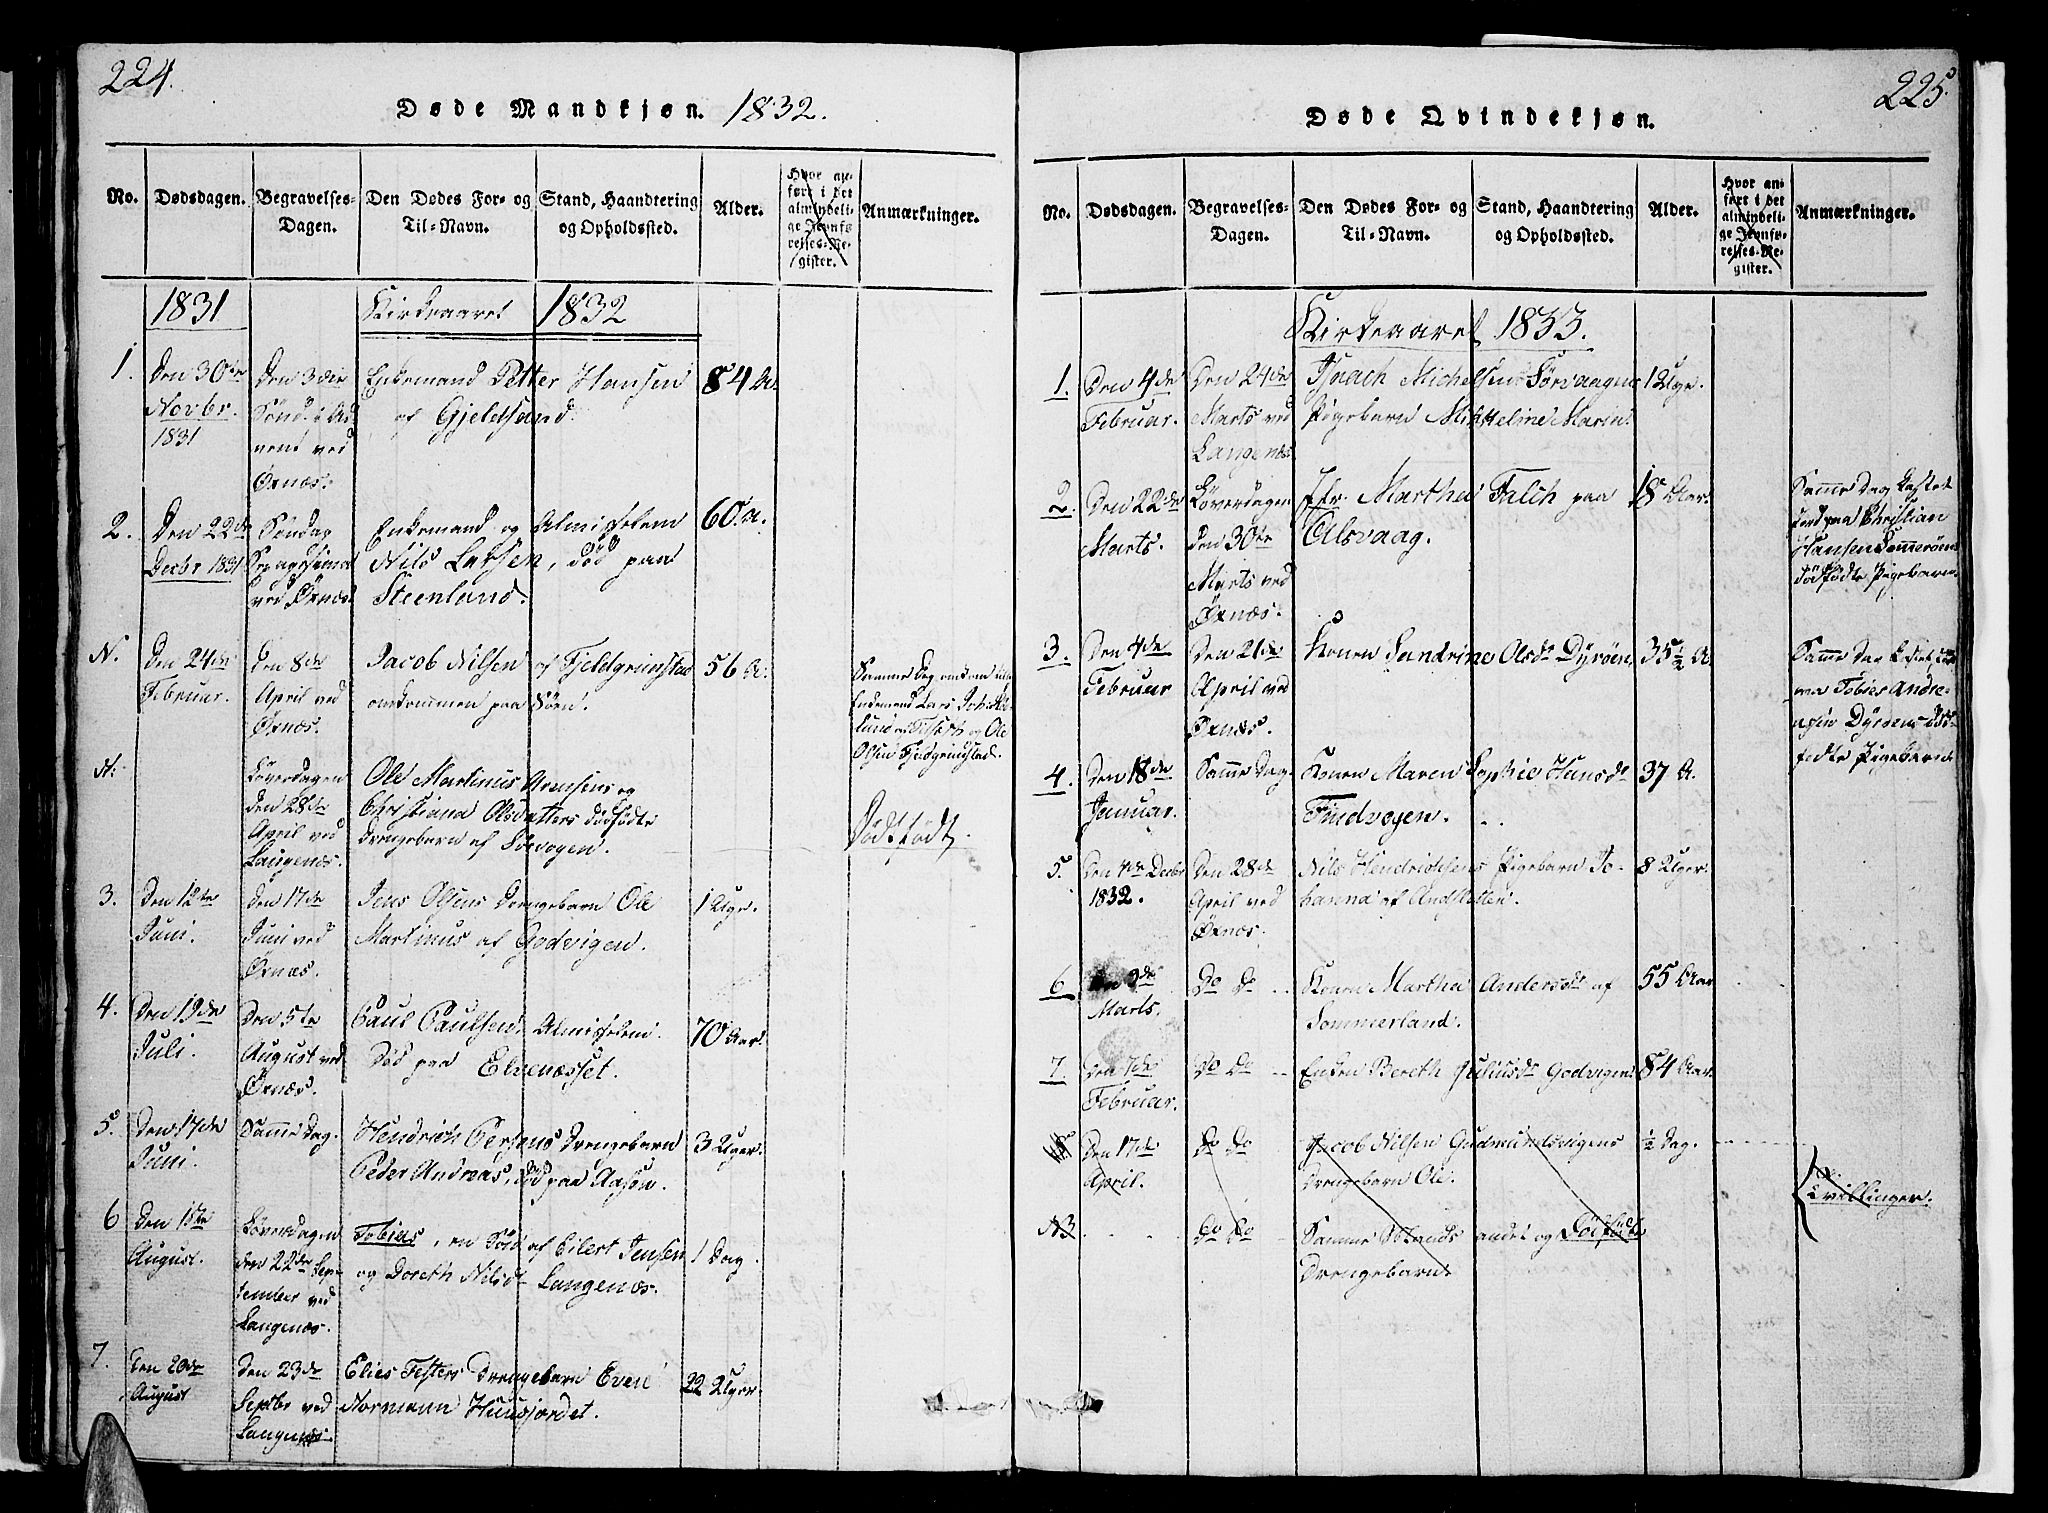 224.
Døde Mandkjøn. 1832.
No.
Dødsdagen.
Begravelses-
Dagen.
Den Dødes For- og
Til-Navn.
Stand, Haandtering
og Opholdssted.
Alder.
Hvor an-
ført i det
almindeli-
ge Jevnfø-
relses-Re-
gister.
Anmærkninger.
1831
Kirkeaaret 1832
1.
Den 30te
Novbr.
1831
Den 3die
Sönd. i Ad-
vent ved
Öxnæs.
Enkemand Petter Hansen
af Gjeldsand.
84 A.
2.
Den 22de
Decbr 1831
Söndag
ved Öxnæs.
Enkemand og Almisselem
Nils Larsen, död paa
Steenland.
60 A.
N.
Den 24de
Februar.
Den 8de
April ved
Öxnæs.
Jacob Nilsen af Fjeldgrimstad
omkommen paa Söen.
56 A.
Samme Dag omkom
Enkemand Lars
og Ole
Olsen Fjeldgrimstad.
N.
Löverdagen
den 28de
April ved
Langenæs.
Ole Martinus Arensens og
Christiana Olsdatters dödfödte
Drengebarn af
Dödfödt.
3.
Den 12te
Juni.
Den 17de
Juni ved
Öxnæs.
Jens Olsens Drengebarn Ole
Martinus af Godvigen.
1 Uge.
4.
Den 19de
Juli.
Den 5te
August ved
Öxnæs.
Paul Paulsen, Almisselem.
Död paa Elvenæsset.
70 Aar.
5.
Den 14de
Juni.
Samme Dag.
Hendrich Persens Drengebarn
Peder Andreas, död paa Aasön.
3 Uger.
6
Den 1ste
August.
Löverdagen
den 22de Sep-
tember ved
Langenæs.
Tobias, en Sön af Eilert Jensen
og Doreth Nilsdr Langenæs.
1 Dag.
7.
Den 20de
August
Den 23de
Septbr ved
Langenæs.
Elies Festers Drengebarn Even
Normann Huusjordet.
22 Uger.
225.
Døde Qvindekjøn.
No.
Dødsdagen.
Begravelses-
Dagen.
Den Dødes For- og
Til-Navn.
Stand, Haandtering
og Opholdssted.
Alder.
Hvor an-
ført i det
almindeli-
ge Jevnfø-
relses-Re-
gister.
Anmærkninger.
Kirkeaaret 1833.
1.
Den 4de
Februar.
Den 24de
Marts ved
Langenæs
Isach Michelsens Sörvaagne
Pigebarn Mikkeline Maria.
1 Uge.
2.
Den 22de
Marts.
Löverdagen
den 30te
Marts ved
Öxnæs.
Jfr. Martha Falch paa
Alsvaag.
18 Aar.
Samme Dag kastet
Jord paa Christian
Hansen Sommeröens
dödfödte Pigebarn.
3.
Den 4de
Februar
Den 21de
April ved
Öxnæs.
Konen Sandrine Olsdr Dyröen.
35½ A
Samme Dag kastet Jord
paa Tobies Andre-
asen Dyröens död-
födte Pigebarn.
4.
Den 18de
Januar.
Samme Dag.
Konen Maren Sophie Hansdr
Findvogen.
37 A.
5.
Den 4de Decbr
1832.
Den 28de
April ved
Öxnæs.
Nils Hendrichsens Pigebarn Jo-
hanna af Andsletten.
8 Uger.
6
Den 9de
Marts.
Do Do
Konen Martha Andersdr af
Sommerland.
55 Aar
7.
Den 7de
Februar.
Do Do
Enken Bereth Juliusdr Godvigen
84 Aar.
Den 17de
April.
Do Do
Jacob Nilsen Gudmundsvigens
Drengebarn Ole.
½ Dag.
Tvillinger.
N3
Do Do
Samme Mands andet og Dödfödte
Drengebarn.